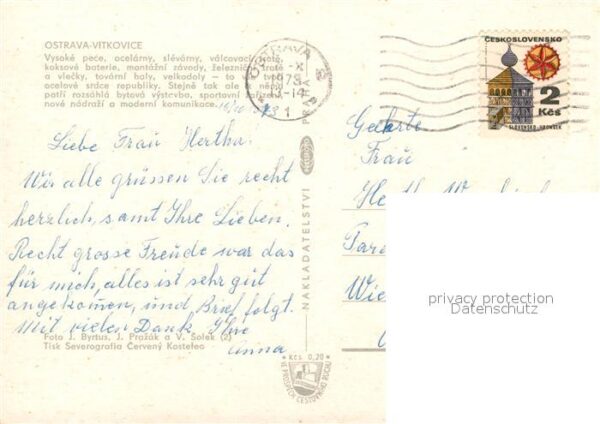 OSTRAVA-VÍTKOVICE
Vysoké pece, ocelárny, slévárny, válcovací tratě,
koksové baterie, montážní závody, železniční tratě
a vlečky, tovární haly, velkodoly — to je
ocelové srdce republiky. Stejně tak ale k němu
patří rozsáhlá bytová výstavba, sportovní zařízení,
nové nádraží a moderní komunikace.
Liebe Frau Hertha.
Wir alle grüssen Sie recht
herzlich, samt Ihre Lieben.
Recht grosse Freude war das
für mich, alles ist sehr gut
angekommen, und Brief folgt.
Mit vielen Dank Ihre
Anna
Foto J. Byrtus, J. Pražák a V. Šolek (2)
Tisk Severografia Červený Kostelec
OSTRAVA
-X
1973
-14
1
NAKLADATELSTVÍ
PRAHA
Kčs. 0,20
VE PROSPĚCH CESTOVNÍHO RUCHU
ČESKOSLOVENSKO
2
Kčs
SLOVENSKO, HRONSEK
Geehrte
Frau
privacy protection
Datenschutz